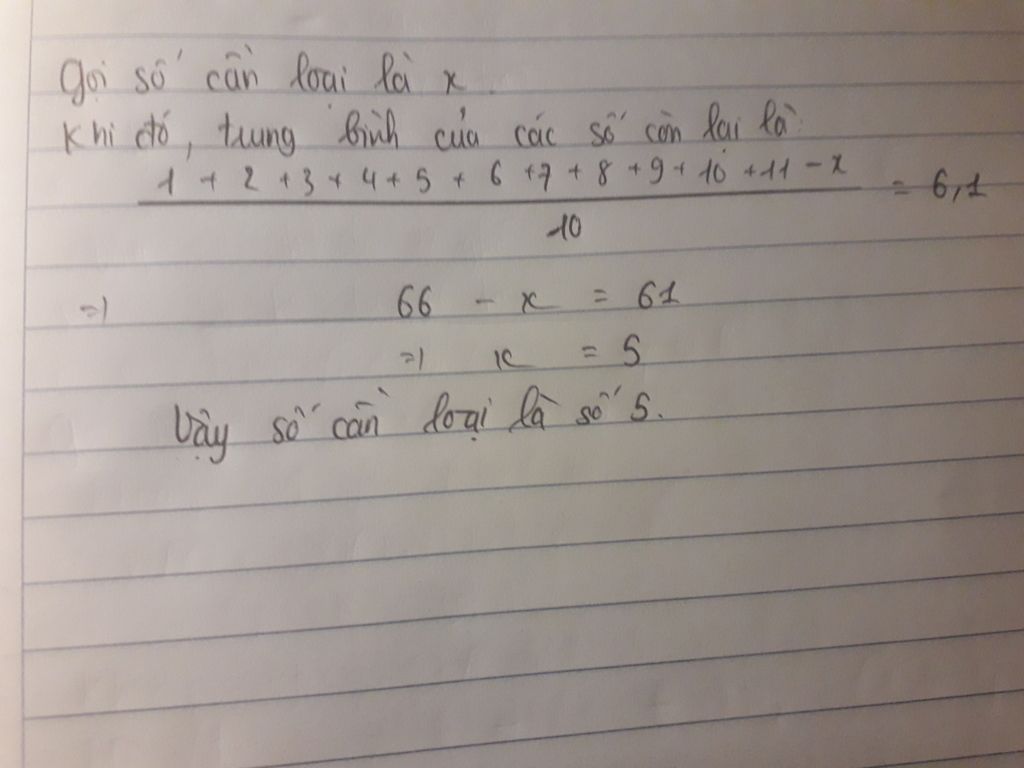 Gọi số cần loại là x.
Khi đó, trung bình của các số còn lại là:
1 + 2 + 3 + 4 + 5 + 6 + 7 + 8 + 9 + 10 + 11 - x = 6,1
10
=> 66 - x = 61
=> x = 5
Vậy số cần loại là số 5.